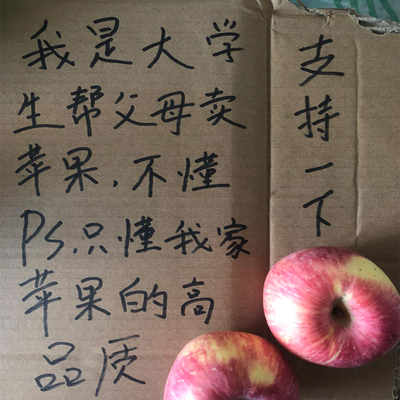 我是大学
生帮父母卖
苹果.不懂
PS.只懂我家
苹果的高
品质
支持一下